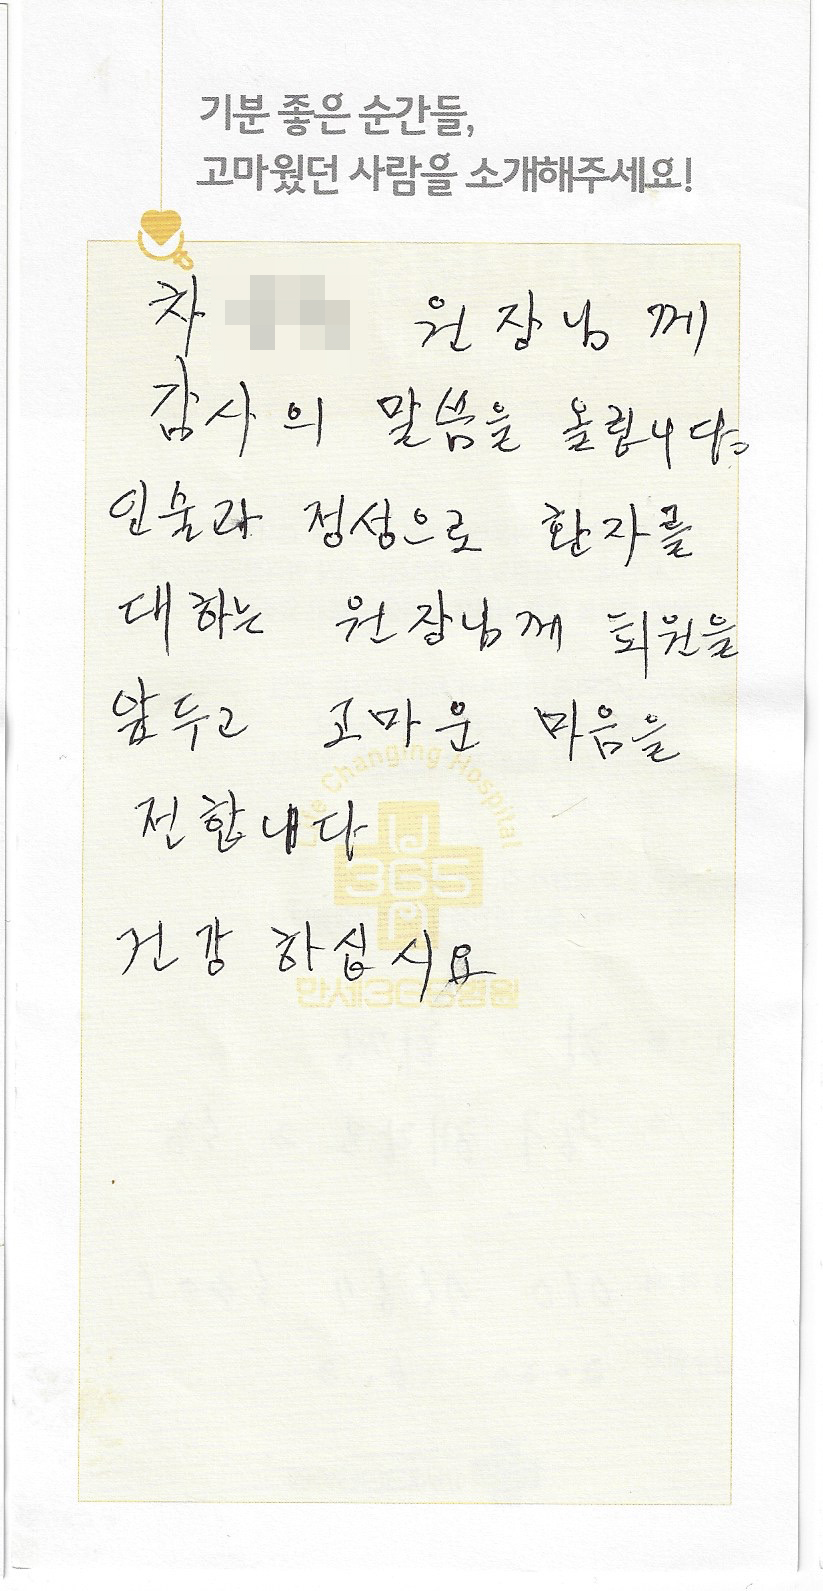 기분 좋은 순간들,
고마웠던 사람을 소개해주세요!
차 원장님께
감사의 말씀을 올립니다.
인술과 정성으로 환자를
대하는 원장님께 퇴원을
앞두고 고마운 마음을
전합니다
Changing Hospital
365
건강 하십시요
만세365병원